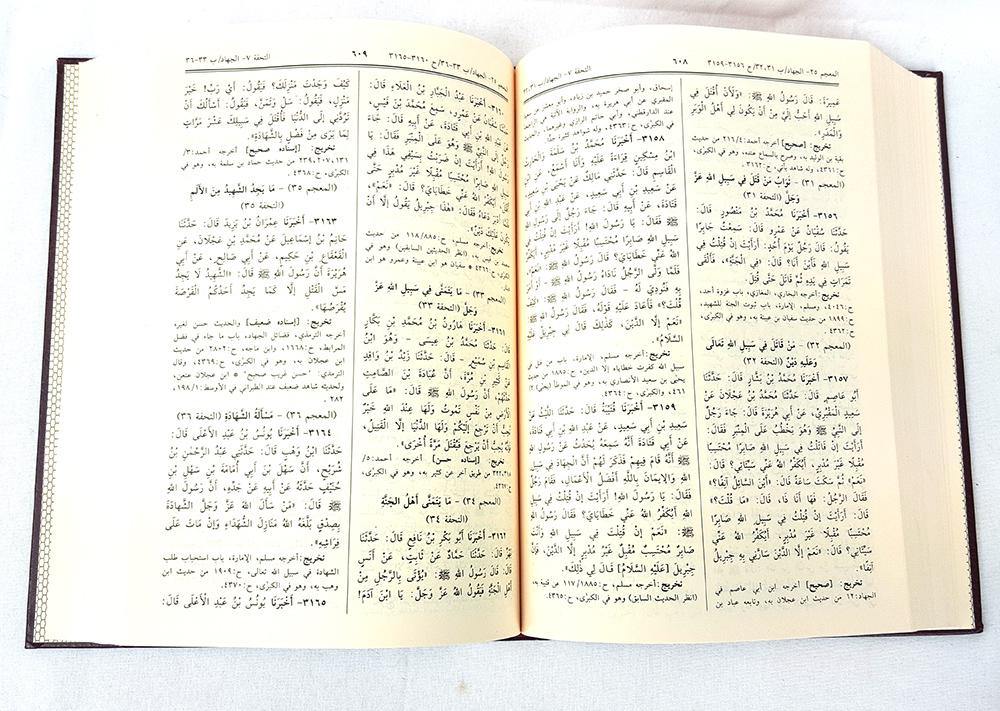 المعجم ٢٥- الجهاد/ب ٣٢،٣١/ح ٣١٥٦-٣١٥٩
٦٠٨
التحفة ٧- الجهاد/ب ٣١
عَمِيرَةَ: قَالَ رَسُولُ اللهِ ﷺ: «وَلَأَنْ أُقْتَلَ فِي
سَبِيلِ اللهِ أَحَبُّ إِلَيَّ مِنْ أَنْ يَكُونَ لِي أَهْلُ الْوَبَرِ
وَالْمَدَرِ».
تخريج: [صحيح] أخرجه أحمد: ٢١٦/٤ من حديث
بقية بن الوليد به، وصرح بالسماع عنده، وهو في الكبرى،
ح: ٤٣٦١، وله شاهد يأتي، ح: ٣١٦٢.
(المعجم ٣١) - ثَوَابُ مَنْ قُتِلَ فِي سَبِيلِ اللهِ عَزَّ
وَجَلَّ (التحفة ٣١)
٣١٥٦- أَخْبَرَنَا مُحَمَّدُ بْنُ مَنْصُورٍ قَالَ:
حَدَّثَنَا سُفْيَانُ عَنْ عَمْرٍو قَالَ: سَمِعْتُ جَابِرًا
يَقُولُ: قَالَ رَجُلٌ يَوْمَ أُحُدٍ: أَرَأَيْتَ إِنْ قُتِلْتُ فِي
سَبِيلِ اللهِ فَأَيْنَ أَنَا؟ قَالَ: «فِي الْجَنَّةِ»، فَأَلْقَى
تَمَرَاتٍ فِي يَدِهِ ثُمَّ قَاتَلَ حَتَّى قُتِلَ.
تخريج: أخرجه البخاري، المغازي، باب غزوة أحد،
ح: ٤٠٤٦، ومسلم، الإمارة، باب ثبوت الجنة للشهيد،
ح: ١٨٩٩ من حديث سفيان بن عيينة به، وهو في الكبرى،
ح: ٤٣٦٢.
(المعجم ٣٢) - مَنْ قَاتَلَ فِي سَبِيلِ اللهِ تَعَالَى
وَعَلَيْهِ دَيْنٌ (التحفة ٣٢)
٣١٥٧- أَخْبَرَنَا مُحَمَّدُ بْنُ بَشَّارٍ قَالَ: حَدَّثَنَا
أَبُو عَاصِمٍ قَالَ: حَدَّثَنَا مُحَمَّدُ بْنُ عَجْلَانَ عَنْ
سَعِيدٍ الْمَقْبُرِيِّ، عَنْ أَبِي هُرَيْرَةَ قَالَ: جَاءَ رَجُلٌ
إِلَى النَّبِيِّ ﷺ وَهُوَ يَخْطُبُ عَلَى الْمِنْبَرِ فَقَالَ:
أَرَأَيْتَ إِنْ قَاتَلْتُ فِي سَبِيلِ اللهِ صَابِرًا مُحْتَسِبًا
مُقْبِلًا غَيْرَ مُدْبِرٍ، أَيُكَفِّرُ اللهُ عَنِّي سَيِّئَاتِي؟ قَالَ:
«نَعَمْ» ثُمَّ سَكَتَ سَاعَةً قَالَ: «أَيْنَ السَّائِلُ آنِفًا؟»
فَقَالَ الرَّجُلُ: هَا أَنَا ذَا، قَالَ: «مَا قُلْتَ؟»
قَالَ: أَرَأَيْتَ إِنْ قُتِلْتُ فِي سَبِيلِ اللهِ صَابِرًا
مُحْتَسِبًا مُقْبِلًا غَيْرَ مُدْبِرٍ، أَيُكَفِّرُ اللهُ عَنِّي
سَيِّئَاتِي؟ قَالَ: «نَعَمْ إِلَّا الدَّيْنَ سَارَّنِي بِهِ جِبْرِيلُ
آنِفًا».
تخريج: [صحيح] أخرجه ابن أبي عاصم في
الجهاد: ١٢ من حديث ابن عجلان به، وتابعه عباد بن
إسحاق، وأبو صخر حميد بن زياد، وأبو معشر عن
المقبري عن أبي هريرة به، والرواية الآتية هي
عند الدارقطني، وأبي حاتم الرازي وغيرهما،
في الكبرى، ح: ٤٣٦٣، وله شواهد كثيرة
٣١٥٨- أَخْبَرَنَا مُحَمَّدُ بْنُ سَلَمَةَ وَالْحَارِثُ
ابْنُ مِسْكِينٍ قِرَاءَةً عَلَيْهِ وَأَنَا أَسْمَعُ عَنِ
الْقَاسِمِ قَالَ: حَدَّثَنِي مَالِكٌ عَنْ يَحْيَى بْنِ
عَنْ سَعِيدِ بْنِ أَبِي سَعِيدٍ، عَنْ عَبْدِ اللهِ بْنِ أَبِي
قَتَادَةَ، عَنْ أَبِيهِ قَالَ: جَاءَ رَجُلٌ إِلَى رَسُولِ اللهِ
ﷺ فَقَالَ: يَا رَسُولَ اللهِ! أَرَأَيْتَ إِنْ قُتِلْتُ فِي
سَبِيلِ اللهِ صَابِرًا مُحْتَسِبًا مُقْبِلًا غَيْرَ مُدْبِرٍ،
أَيُكَفِّرُ اللهُ عَنِّي خَطَايَايَ؟ قَالَ رَسُولُ اللهِ ﷺ: «نَعَمْ»
فَلَمَّا وَلَّى الرَّجُلُ نَادَاهُ رَسُولُ اللهِ ﷺ أَوْ أَمَرَ
بِهِ فَنُودِيَ لَهُ - فَقَالَ رَسُولُ اللهِ ﷺ: «كَيْفَ
قُلْتَ؟» فَأَعَادَ عَلَيْهِ قَوْلَهُ، فَقَالَ رَسُولُ اللهِ ﷺ:
«نَعَمْ إِلَّا الدَّيْنَ، كَذَلِكَ قَالَ لِي جِبْرِيلُ عَلَيْهِ
السَّلَامُ».
تخريج: أخرجه مسلم، الإمارة، باب من قتل في
سبيل الله كفرت خطاياه إلا الدين، ح: ١٨٨٥ من حديث
يحيى بن سعيد الأنصاري به، وهو في الموطأ (يحيى)
٤٦١، والكبرى، ح: ٤٣٦٤.
٣١٥٩- أَخْبَرَنَا قُتَيْبَةُ قَالَ: حَدَّثَنَا اللَّيْثُ عَنْ
سَعِيدِ بْنِ أَبِي سَعِيدٍ، عَنْ عَبْدِ اللهِ بْنِ أَبِي قَتَادَةَ،
عَنْ أَبِي قَتَادَةَ أَنَّهُ سَمِعَهُ يُحَدِّثُ عَنْ رَسُولِ اللهِ
ﷺ أَنَّهُ قَامَ فِيهِمْ فَذَكَرَ لَهُمْ أَنَّ الْجِهَادَ فِي سَبِيلِ
اللهِ وَالْإِيمَانَ بِاللهِ أَفْضَلُ الْأَعْمَالِ، فَقَامَ رَجُلٌ
فَقَالَ: يَا رَسُولَ اللهِ! أَرَأَيْتَ إِنْ قُتِلْتُ فِي سَبِيلِ
اللهِ أَيُكَفِّرُ اللهُ عَنِّي خَطَايَايَ؟ فَقَالَ رَسُولُ اللهِ
ﷺ: «نَعَمْ إِنْ قُتِلْتَ فِي سَبِيلِ اللهِ وَأَنْتَ
صَابِرٌ مُحْتَسِبٌ مُقْبِلٌ غَيْرُ مُدْبِرٍ إِلَّا الدَّيْنَ، فَإِنَّ
جِبْرِيلَ [عَلَيْهِ السَّلَامُ] قَالَ لِي ذَلِكَ».
تخريج: أخرجه مسلم، ح: ١١٧/١٨٨٥ عن قتيبة به،
(انظر الحديث السابق) وهو في الكبرى، ح: ٤٣٦٥.
٢٥- الجهاد/ب ٣٣-٣٦/ح ٣١٦٠-٣١٦٥
٦٠٩
التحفة ٧- الجهاد/ب ٣٣-٣٦
٣١٦٠- أَخْبَرَنَا عَبْدُ الْجَبَّارِ بْنُ الْعَلَاءِ قَالَ:
سُفْيَانُ عَنْ عَمْرٍو، سَمِعَ مُحَمَّدَ بْنَ قَيْسٍ،
عَبْدِ اللهِ بْنِ أَبِي قَتَادَةَ، عَنْ أَبِيهِ قَالَ: جَاءَ
إِلَى النَّبِيِّ ﷺ وَهُوَ عَلَى الْمِنْبَرِ فَقَالَ: يَا
رَسُولَ اللهِ! أَرَأَيْتَ إِنْ ضَرَبْتُ بِسَيْفِي هَذَا فِي
سَبِيلِ اللهِ صَابِرًا مُحْتَسِبًا مُقْبِلًا غَيْرَ مُدْبِرٍ حَتَّى
أَيُكَفِّرُ اللهُ عَنِّي خَطَايَايَ؟ قَالَ: «نَعَمْ»،
أَدْبَرَ دَعَاهُ فَقَالَ: «هَذَا جِبْرِيلُ يَقُولُ إِلَّا أَنْ
يَكُونَ عَلَيْكَ دَيْنٌ».
تخريج: أخرجه مسلم، ح: ١١٨/١٨٨٥ من حديث
(انظر الحديثين السابقين) وهو في الكبرى،
ح: ٤٣٦٦ * سفيان هو ابن عيينة وعمرو هو ابن
(المعجم ٣٣) - مَا يَتَمَنَّى فِي سَبِيلِ اللهِ عَزَّ
وَجَلَّ (التحفة ٣٣)
٣١٦١- أَخْبَرَنَا هَارُونُ بْنُ مُحَمَّدِ بْنِ بَكَّارٍ
مُحَمَّدُ بْنُ عِيسَى - وَهُوَ ابْنُ
الْقَاسِمِ بْنِ سُمَيْعٍ - قَالَ: حَدَّثَنَا زَيْدُ بْنُ وَاقِدٍ
عَنْ كَثِيرِ بْنِ مُرَّةَ، أَنَّ عُبَادَةَ بْنَ الصَّامِتِ
حَدَّثَهُمْ، أَنَّ رَسُولَ اللهِ ﷺ قَالَ: «مَا عَلَى
الْأَرْضِ مِنْ نَفْسٍ تَمُوتُ وَلَهَا عِنْدَ اللهِ خَيْرٌ
تُحِبُّ أَنْ تَرْجِعَ إِلَيْكُمْ وَلَهَا الدُّنْيَا إِلَّا الْقَتِيلُ،
فَإِنَّهُ يُحِبُّ أَنْ يَرْجِعَ فَيُقْتَلَ مَرَّةً أُخْرَى».
تخريج: [إسناده حسن] أخرجه أحمد: ٥/
٣٢٢،٣١٨ من طريق آخر عن كثير به، وهو في الكبرى،
ح: ٤٣٦٧.
(المعجم ٣٤) - مَا يَتَمَنَّى أَهْلُ الْجَنَّةِ
(التحفة ٣٤)
٣١٦٢- أَخْبَرَنَا أَبُو بَكْرِ بْنُ نَافِعٍ قَالَ: حَدَّثَنَا
بَهْزٌ قَالَ: حَدَّثَنَا حَمَّادٌ عَنْ ثَابِتٍ، عَنْ أَنَسٍ
قَالَ: قَالَ رَسُولُ اللهِ ﷺ: «يُؤْتَى بِالرَّجُلِ مِنْ
أَهْلِ الْجَنَّةِ فَيَقُولُ اللهُ عَزَّ وَجَلَّ: يَا ابْنَ آدَمَ!
كَيْفَ وَجَدْتَ مَنْزِلَكَ؟ فَيَقُولُ: أَيْ رَبِّ! خَيْرَ
مَنْزِلٍ، فَيَقُولُ: سَلْ وَتَمَنَّ، فَيَقُولُ: أَسْأَلُكَ أَنْ
تَرُدَّنِي إِلَى الدُّنْيَا فَأُقْتَلَ فِي سَبِيلِكَ عَشْرَ مَرَّاتٍ
لِمَا يَرَى مِنْ فَضْلِ الشَّهَادَةِ».
تخريج: [إسناده صحيح] أخرجه أحمد: ٣/
٢٣٩،٢٠٧،١٣١ من حديث حماد بن سلمة به، وهو في
الكبرى، ح: ٤٣٦٨.
(المعجم ٣٥) - مَا يَجِدُ الشَّهِيدُ مِنَ الْأَلَمِ
(التحفة ٣٥)
٣١٦٣- أَخْبَرَنَا عِمْرَانُ بْنُ يَزِيدَ قَالَ: حَدَّثَنَا
حَاتِمُ بْنُ إِسْمَاعِيلَ عَنْ مُحَمَّدِ بْنِ عَجْلَانَ، عَنِ
الْقَعْقَاعِ بْنِ حَكِيمٍ، عَنْ أَبِي صَالِحٍ، عَنْ أَبِي
هُرَيْرَةَ أَنَّ رَسُولَ اللهِ ﷺ قَالَ: «الشَّهِيدُ لَا يَجِدُ
مَسَّ الْقَتْلِ إِلَّا كَمَا يَجِدُ أَحَدُكُمُ الْقَرْصَةَ
يُقْرَصُهَا».
تخريج: [إسناده ضعيف] والحديث حسن لغيره،
أخرجه الترمذي، فضائل الجهاد، باب ما جاء في فضل
المرابط، ح: ١٦٦٨، وابن ماجه، ح: ٢٨٠٢ من حديث
ابن عجلان به، وهو في الكبرى، ح: ٤٣٦٩، وقال
الترمذي: "حسن غريب صحيح" * ابن عجلان عنعن،
ولحديثه شاهد ضعيف عند الطبراني في الأوسط: ١٩٨/١،
ح: ٢٨٢
(المعجم ٣٦) - مَسْأَلَةُ الشَّهَادَةِ (التحفة ٣٦)
٣١٦٤- أَخْبَرَنَا يُونُسُ بْنُ عَبْدِ الْأَعْلَى قَالَ:
حَدَّثَنَا ابْنُ وَهْبٍ قَالَ: حَدَّثَنِي عَبْدُ الرَّحْمَنِ بْنُ
شُرَيْحٍ، أَنَّ سَهْلَ بْنَ أَبِي أُمَامَةَ بْنِ سَهْلِ بْنِ
حُنَيْفٍ حَدَّثَهُ عَنْ أَبِيهِ عَنْ جَدِّهِ، أَنَّ رَسُولَ اللهِ
ﷺ قَالَ: «مَنْ سَأَلَ اللهَ عَزَّ وَجَلَّ الشَّهَادَةَ
بِصِدْقٍ بَلَّغَهُ اللهُ مَنَازِلَ الشُّهَدَاءِ وَإِنْ مَاتَ عَلَى
فِرَاشِهِ».
تخريج: أخرجه مسلم، الإمارة، باب استحباب طلب
الشهادة في سبيل الله تعالى، ح: ١٩٠٩ من حديث ابن
وهب به، وهو في الكبرى، ح: ٤٣٧٠.
٣١٦٥- أَخْبَرَنَا يُونُسُ بْنُ عَبْدِ الْأَعْلَى قَالَ: